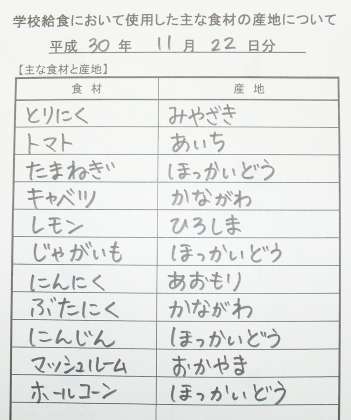 学校給食において使用した主な食材の産地について
平成 30 年 11 月 22 日分
【主な食材と産地】
食材 産地
とりにく みやざき
トマト あいち
たまねぎ ほっかいどう
キャベツ かながわ
レモン ひろしま
じゃがいも ほっかいどう
にんにく あおもり
ぶたにく かながわ
にんじん ほっかいどう
マッシュルーム おかやま
ホールコーン ほっかいどう